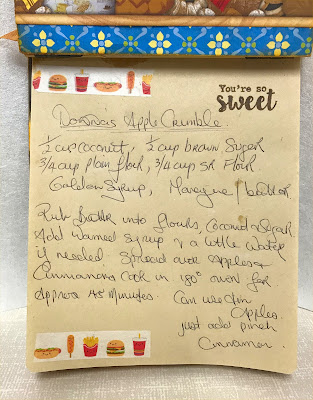 You're so
sweet
Donna's Apple Crumble.
1/2 cup coconut, 1/2 cup brown Sugar
3/4 cup plain flour, 3/4 cup SR Flour.
Golden Syrup, Margine / butter
Rub Butter into flours, Coconut & Sugar
Add warmed syrup & a little water
if needed. Spread over Apples &
Cinnamon Cook in 180° oven for
Approx 45 minutes. Can use tin
Apples.
just add pinch
Cinnamon.